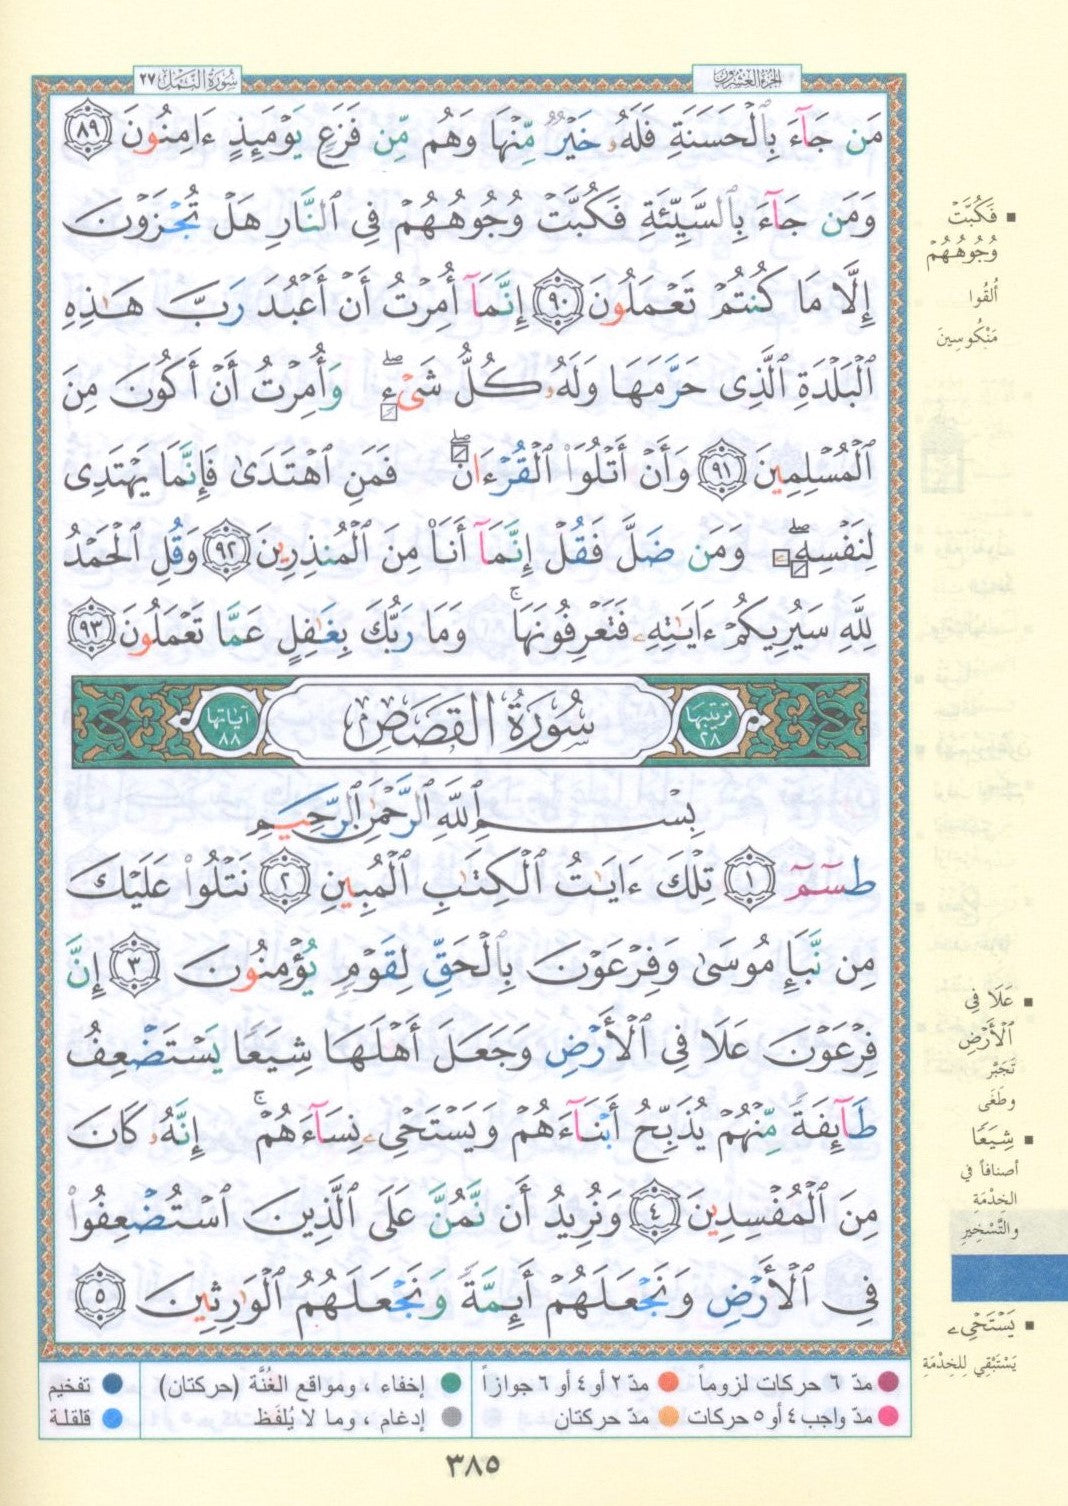 سُورَةُ النَّمْلِ ٢٧
الجُزءُ العِشْرُونَ
مَن جَآءَ بِٱلْحَسَنَةِ فَلَهُۥ خَيْرٌ مِّنْهَا وَهُم مِّن فَزَعٍ يَوْمَئِذٍ ءَامِنُونَ ٨٩
وَمَن جَآءَ بِٱلسَّيِّئَةِ فَكُبَّتْ وُجُوهُهُمْ فِى ٱلنَّارِ هَلْ تُجْزَوْنَ
إِلَّا مَا كُنتُمْ تَعْمَلُونَ ٩٠ إِنَّمَآ أُمِرْتُ أَنْ أَعْبُدَ رَبَّ هَـٰذِهِ
ٱلْبَلْدَةِ ٱلَّذِى حَرَّمَهَا وَلَهُۥ كُلُّ شَىْءٍ ۖ وَأُمِرْتُ أَنْ أَكُونَ مِنَ
ٱلْمُسْلِمِينَ ٩١ وَأَنْ أَتْلُوَا۟ ٱلْقُرْءَانَ ۖ فَمَنِ ٱهْتَدَىٰ فَإِنَّمَا يَهْتَدِى
لِنَفْسِهِۦ ۖ وَمَن ضَلَّ فَقُلْ إِنَّمَآ أَنَا۠ مِنَ ٱلْمُنذِرِينَ ٩٢ وَقُلِ ٱلْحَمْدُ
لِلَّهِ سَيُرِيكُمْ ءَايَـٰتِهِۦ فَتَعْرِفُونَهَا ۚ وَمَا رَبُّكَ بِغَـٰفِلٍ عَمَّا تَعْمَلُونَ ٩٣
ترتيبها ٢٨ سُورَةُ القَصَصِ آياتها ٨٨
بِسْمِ ٱللَّهِ ٱلرَّحْمَـٰنِ ٱلرَّحِيمِ
طسٓمٓ ١ تِلْكَ ءَايَـٰتُ ٱلْكِتَـٰبِ ٱلْمُبِينِ ٢ نَتْلُوا۟ عَلَيْكَ
مِن نَّبَإِ مُوسَىٰ وَفِرْعَوْنَ بِٱلْحَقِّ لِقَوْمٍ يُؤْمِنُونَ ٣ إِنَّ
فِرْعَوْنَ عَلَا فِى ٱلْأَرْضِ وَجَعَلَ أَهْلَهَا شِيَعًا يَسْتَضْعِفُ
طَآئِفَةً مِّنْهُمْ يُذَبِّحُ أَبْنَآءَهُمْ وَيَسْتَحْىِۦ نِسَآءَهُمْ ۚ إِنَّهُۥ كَانَ
مِنَ ٱلْمُفْسِدِينَ ٤ وَنُرِيدُ أَن نَّمُنَّ عَلَى ٱلَّذِينَ ٱسْتُضْعِفُوا۟
فِى ٱلْأَرْضِ وَنَجْعَلَهُمْ أَئِمَّةً وَنَجْعَلَهُمُ ٱلْوَٰرِثِينَ ٥
■ فَكُبَّتْ
وُجُوهُهُمْ
أُلقُوا
مَنْكُوسِينَ
■ عَلَا فِى
ٱلْأَرْضِ
تَجَبَّرَ
وطَغَى
■ شِيَعًا
أصنافاً في
الخِدْمَةِ
والتَّسْخِيرِ
■ يَسْتَحْىِۦ
يَسْتَبْقِي لِلخِدْمَةِ
مدّ ٦ حركات لزوماً
مدّ ٢ أو ٤ أو ٦ جوازاً
إخفاء ، ومواقع الغُنَّة (حركتان)
تفخيم
مدّ واجب ٤ أو ٥ حركات
مدّ حركتان
إدغام ، وما لا يُلفَظ
قلقلة
٣٨٥